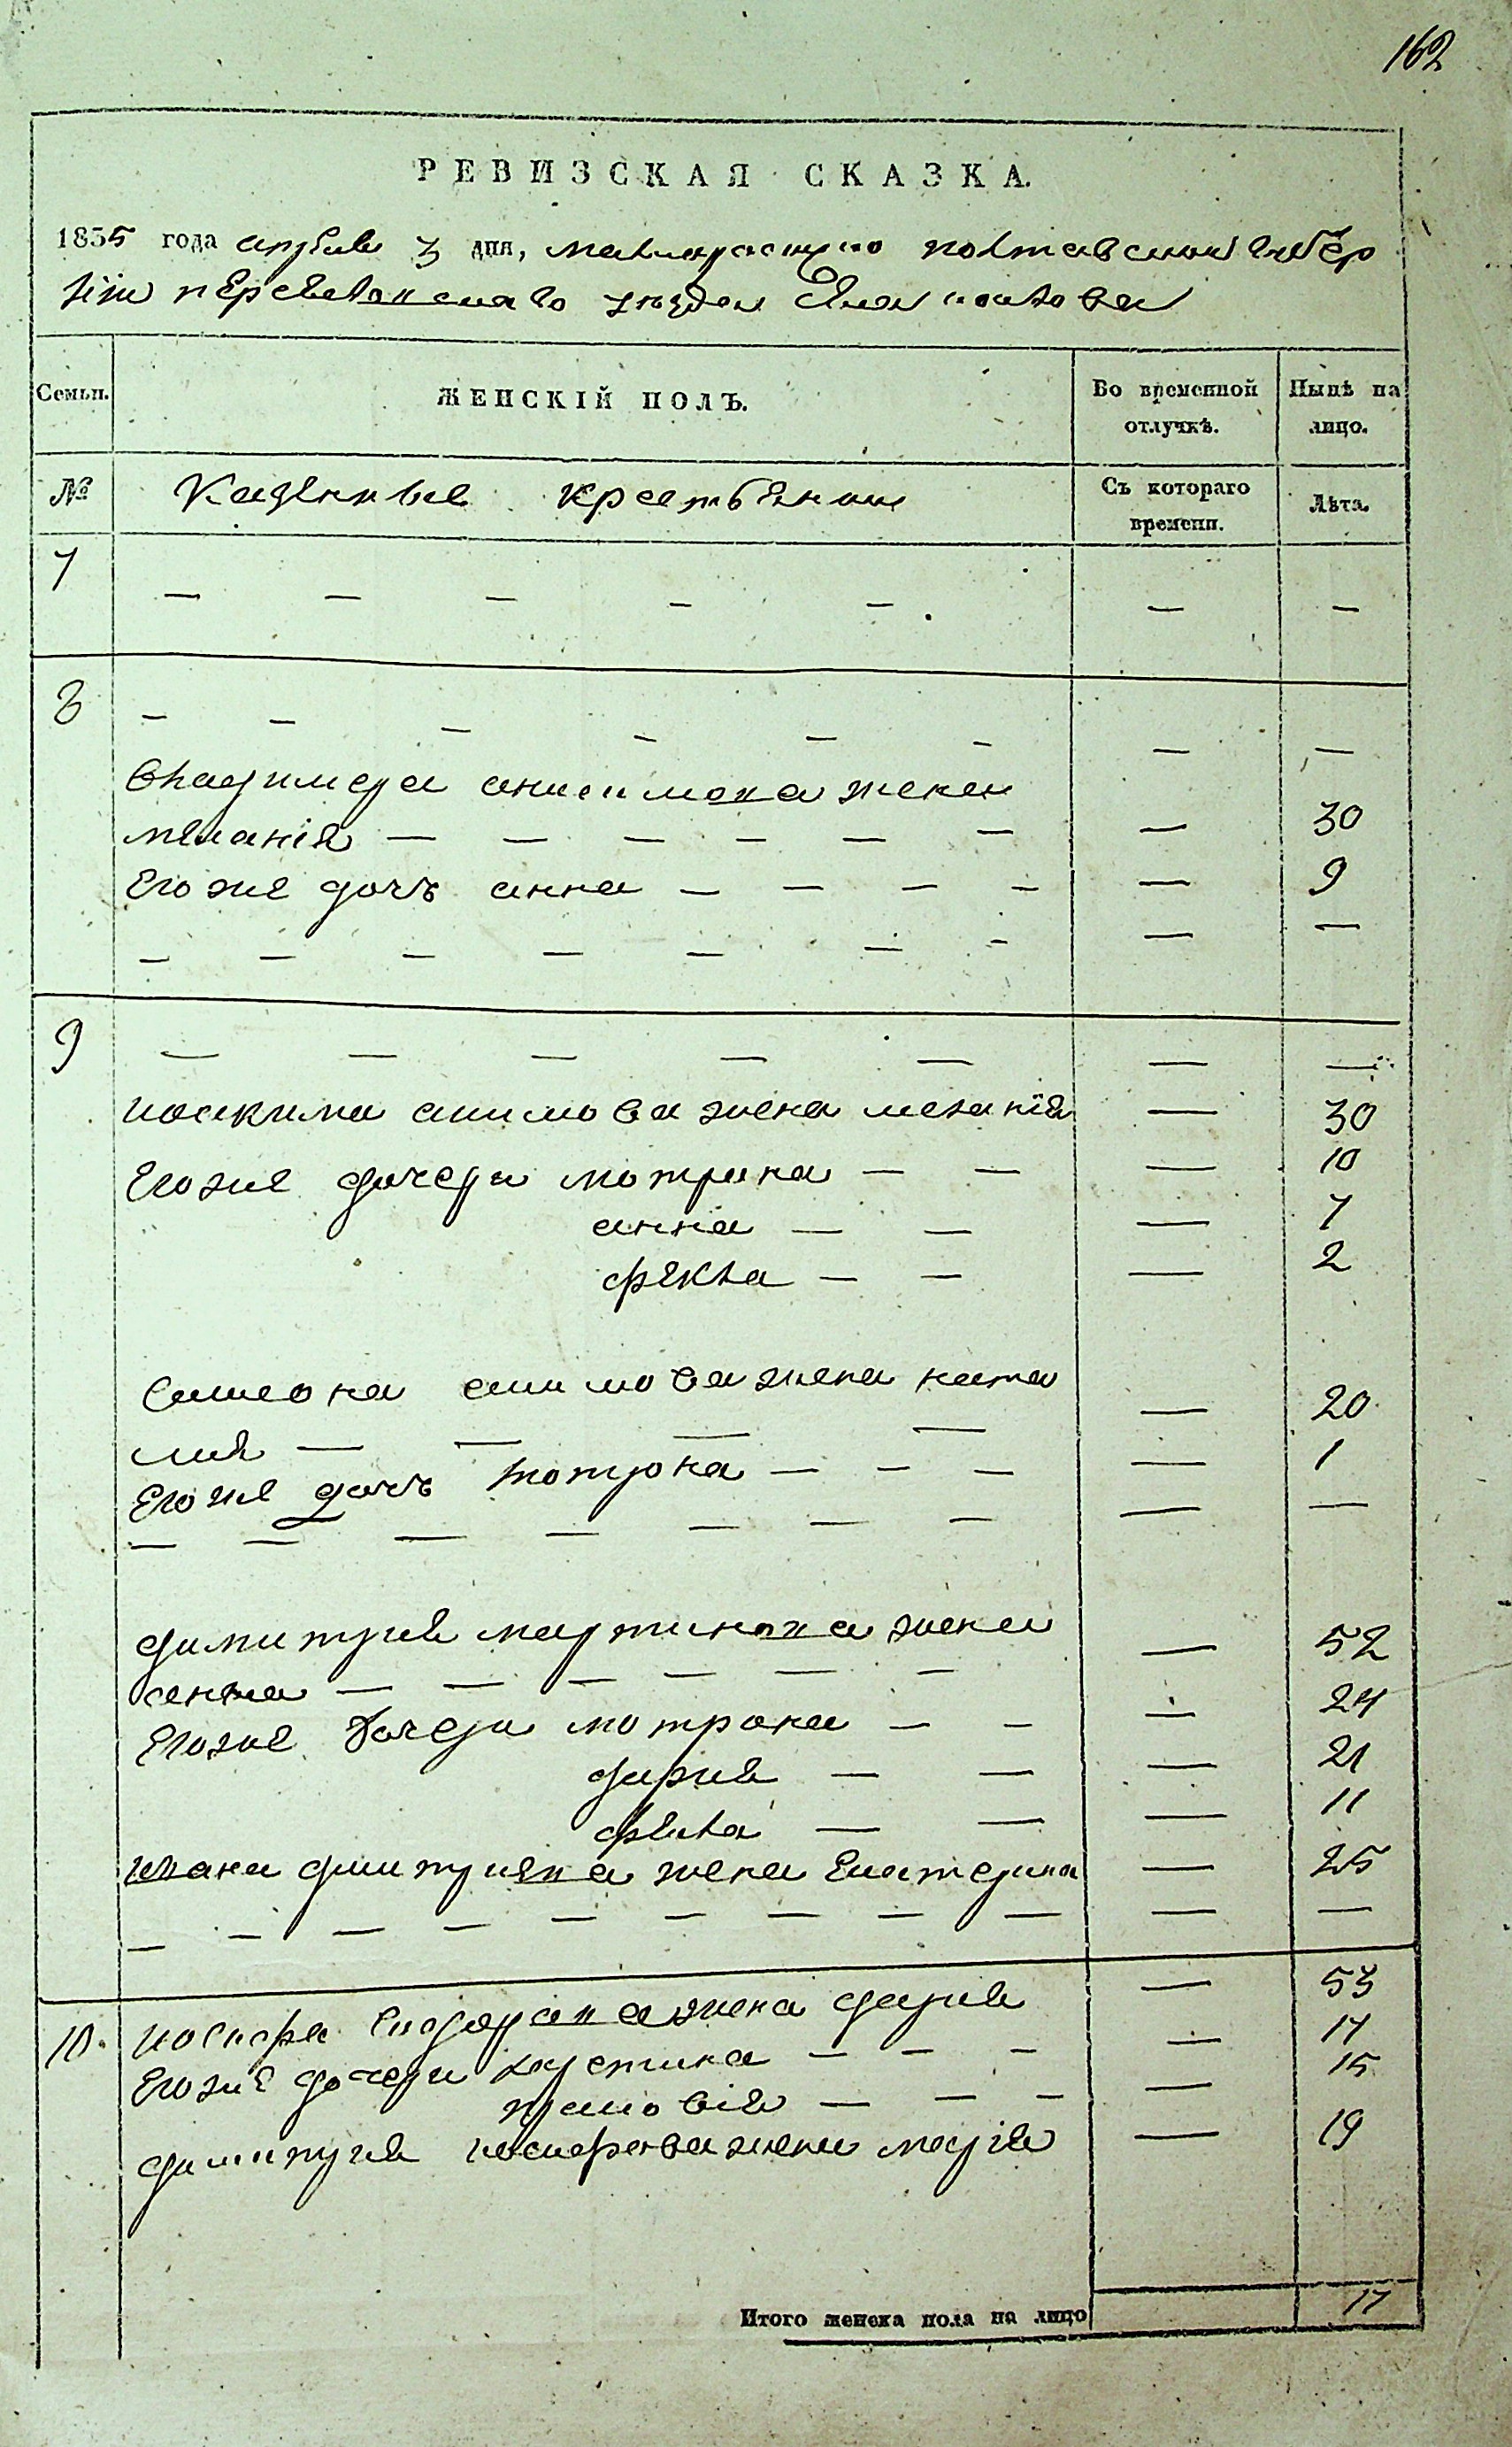 162
РЕВИЗСКАЯ СКАЗКА.
1835 года апреля 3 дня, полтавской губер
нии переволочнаго
Семьи. ЖЕНСКІЙ ПОЛЪ. Во временной отлучкѣ. Нынѣ на лицо.
№ Казенные крестьянки Съ котораго времени. Лѣта.
7 — — — — — — —
8 — — — — — — — —
жена
меланія — — — — — — — 30
Его же дочъ анна — — — — — 9
— — — — — — — — —
9 — — — — — — —
иоакима акимова жена меланія — 30
Его же дочери мотрона — — — 10
анна — — — 7
фекла — — — 2
Симеона акимова жена ната
лия — — — — — 20
Его же дочъ мотрона — — — — 1
— — — — — — — — —
димитрия мартинова жена
— — — — — — — 52
Его же дочери мотрона — — — 24
дария — — — 21
— — — 11
ивана димитриева жена Екатерина — 25
— — — — — — — — — — —
10. иосифа сидорова жена дария — 53
Его же дочери христина — — — — 17
— — — — 15
димитрия иосифова жена мария — 19
Итого женска пола на лицо 17